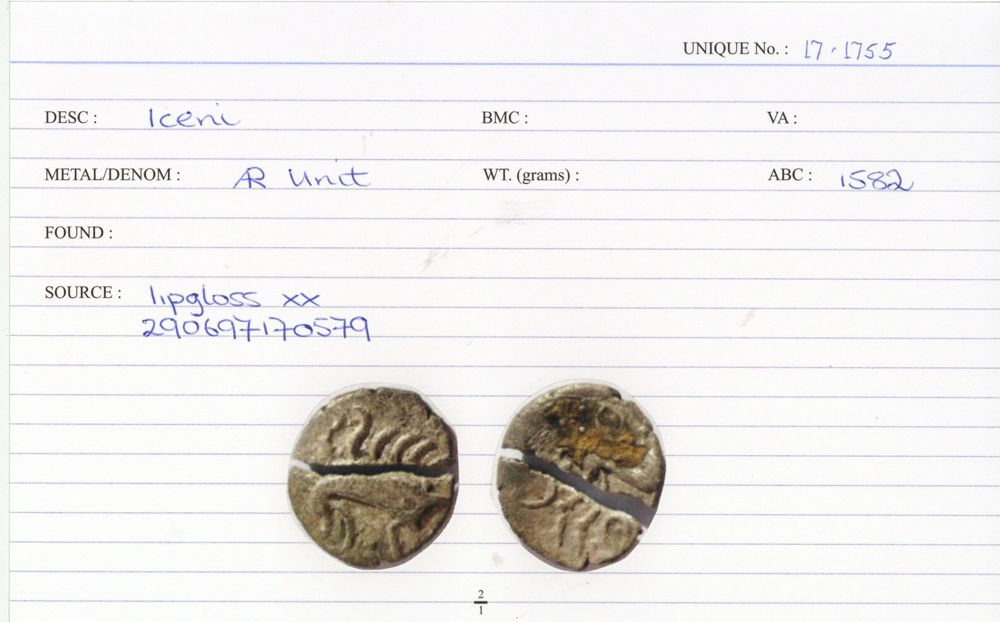 UNIQUE No. : 17.1755
DESC : Iceni BMC : VA :
METAL/DENOM : AR Unit WT. (grams) : ABC : 1582
FOUND :
SOURCE : lipgloss xx
290697170579
2
1